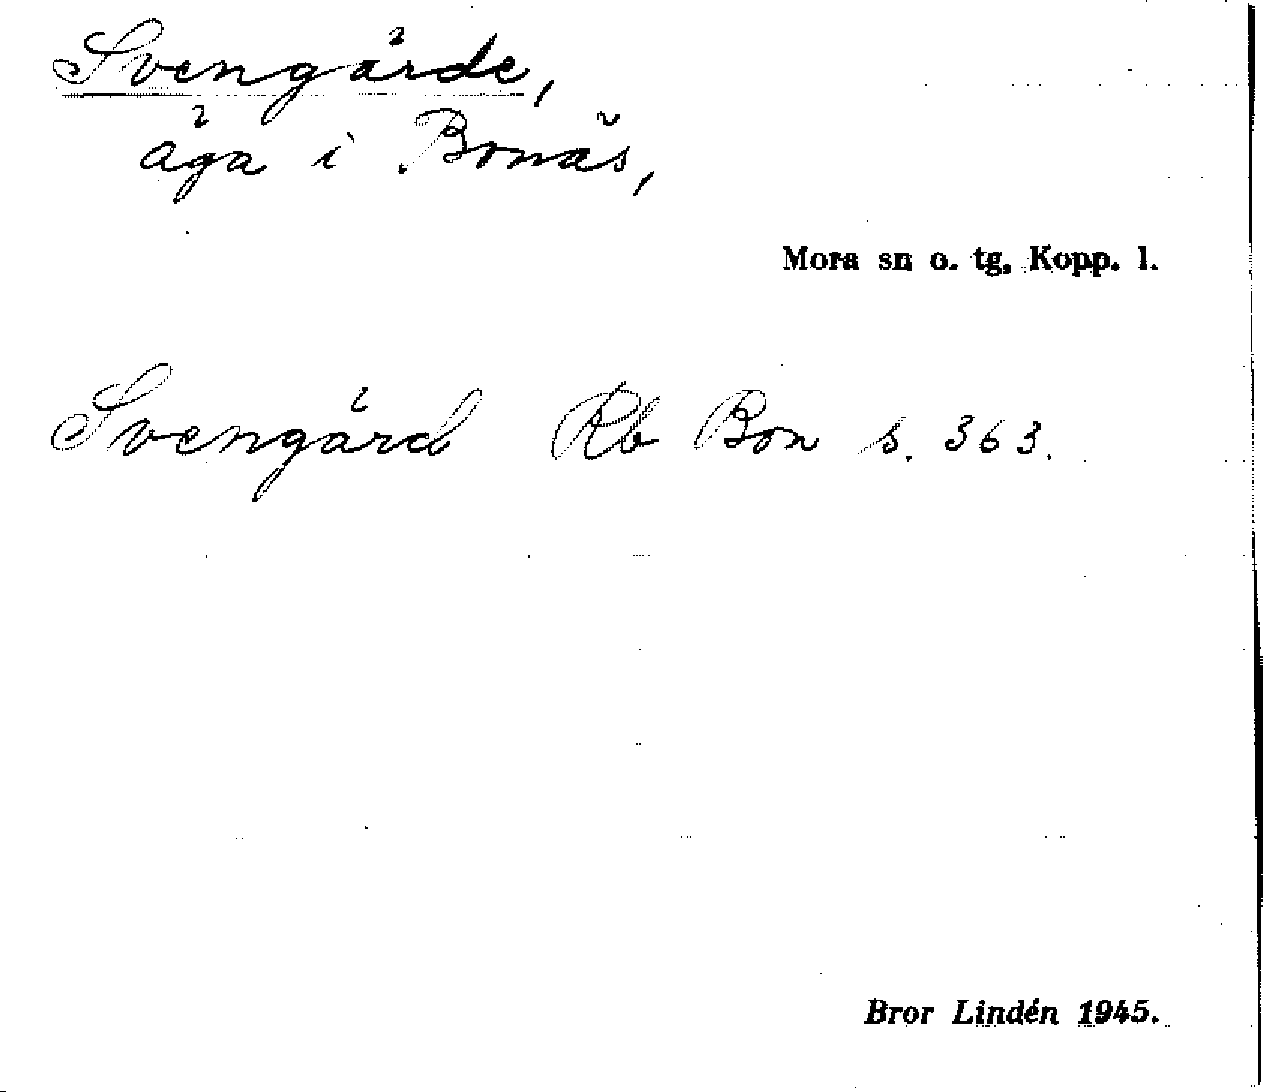 Svengärde,
äga i Bonäs,
Mora sn o. tg, Kopp. l.
Svengärd Rb Bon s. 363.
Bror Lindén 1945.